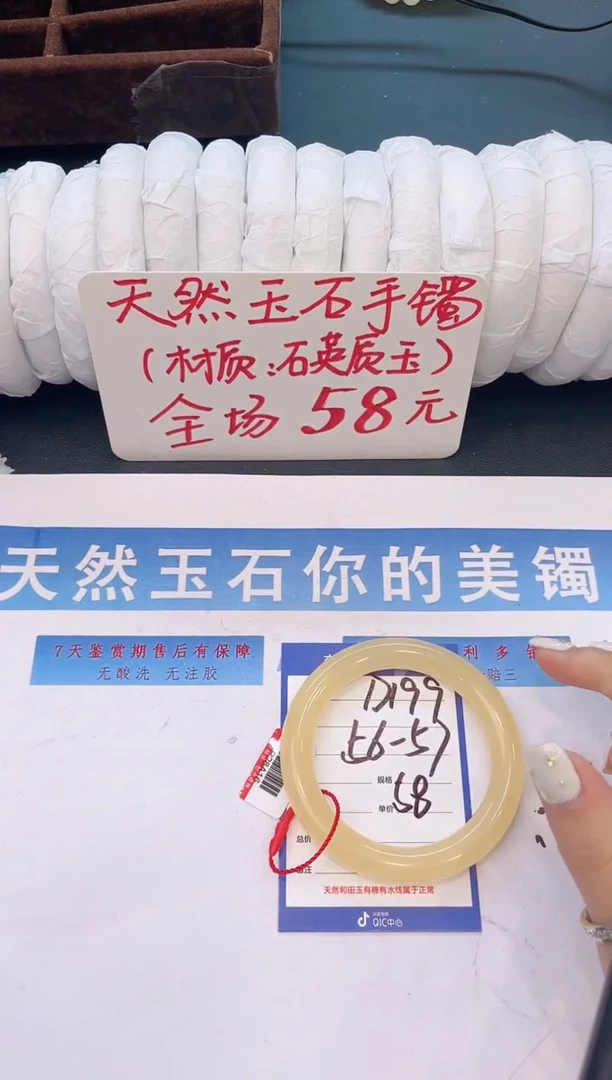 天然玉石手镯
(材质:石英质玉)
全场 58元
天然玉石你的美镯
7天鉴赏期售后有保障
无酸洗 无注胶
利多
赔三
D199
56-57
规格
单价 58
总价
备注
天然和田玉有棉有水线属于正常
QIC中心